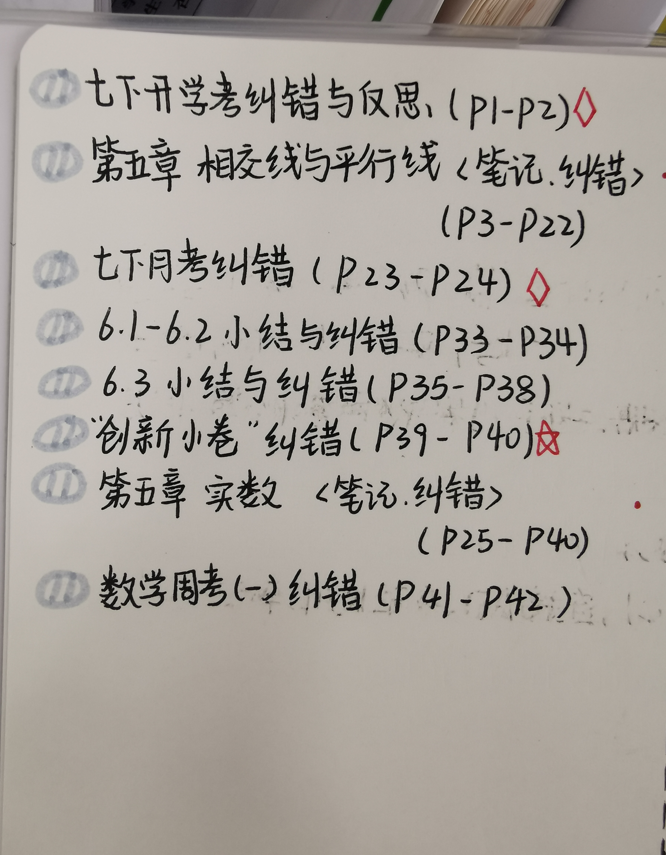 七下开学考纠错与反思 (P1-P2)
第五章 相交线与平行线 <笔记.纠错>
(P3-P22)
七下月考纠错 (P23-P24)
6.1-6.2 小结与纠错 (P33-P34)
6.3 小结与纠错 (P35-P38)
"创新小卷"纠错 (P39-P40)
第五章 实数 <笔记.纠错>
(P25-P40)
数学周考(一)纠错 (P41-P42)